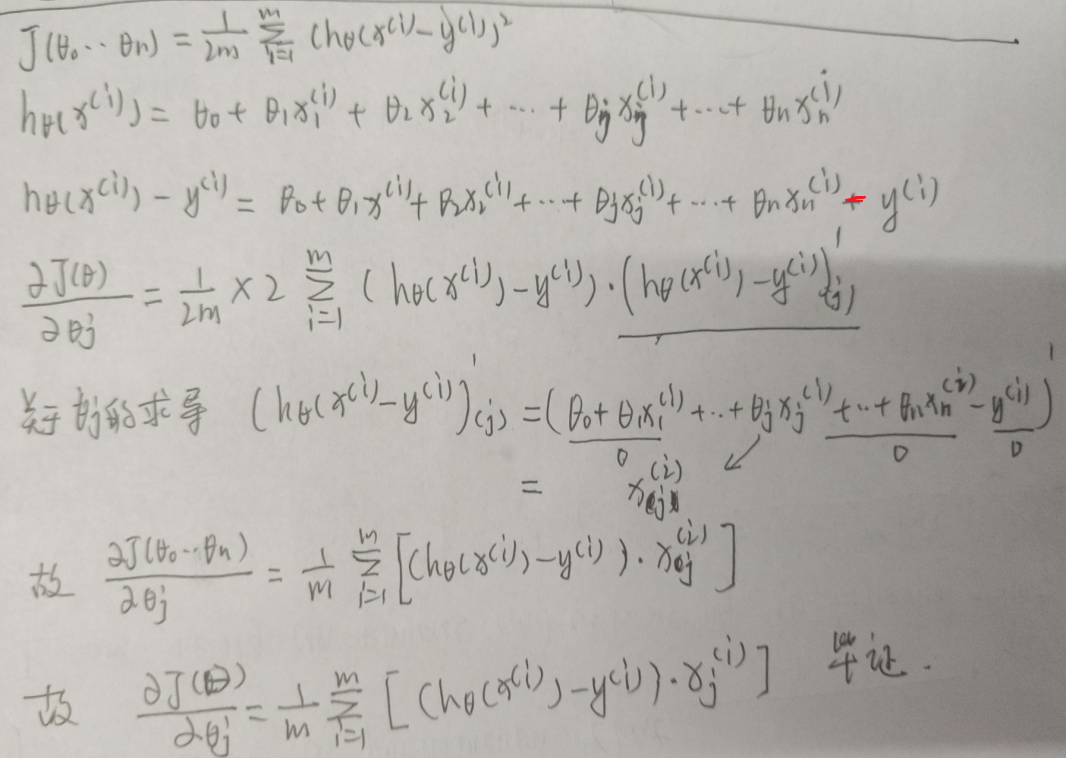 J(θ₀⋯θn) = 1/2m ∑_{i=1}^{m} (hθ(x^(i)-y^(i))²
hθ(x^(i)) = θ₀ + θ₁x₁^(i) + θ₂x₂^(i) + ⋯ + θjxj^(i) + ⋯ + θnxn^(i)
hθ(x^(i)) - y^(i) = θ₀ + θ₁x^(i) + θ₂x₂^(i) + ⋯ + θjxj^(i) + ⋯ + θnxn^(i) - y^(i)
∂J(θ)/∂θj = 1/2m × 2 ∑_{i=1}^{m} (hθ(x^(i)) - y^(i)) · (hθ(x^(i)) - y^(i))'(j)
关于θj的求导 (hθ(x^(i)-y^(i))'(j) = (θ₀ + θ₁x₁^(i) + ⋯ + θjxj^(i) + ⋯ + θnxn^(i) - y^(i))'
0 0 0
= xj^(i)
故 ∂J(θ₀⋯θn)/∂θj = 1/m ∑_{i=1}^{m} [(hθ(x^(i)) - y^(i)) · xj^(i)]
故 ∂J(θ)/∂θj = 1/m ∑_{i=1}^{m} [(hθ(x^(i)) - y^(i)) · xj^(i)] 毕证.